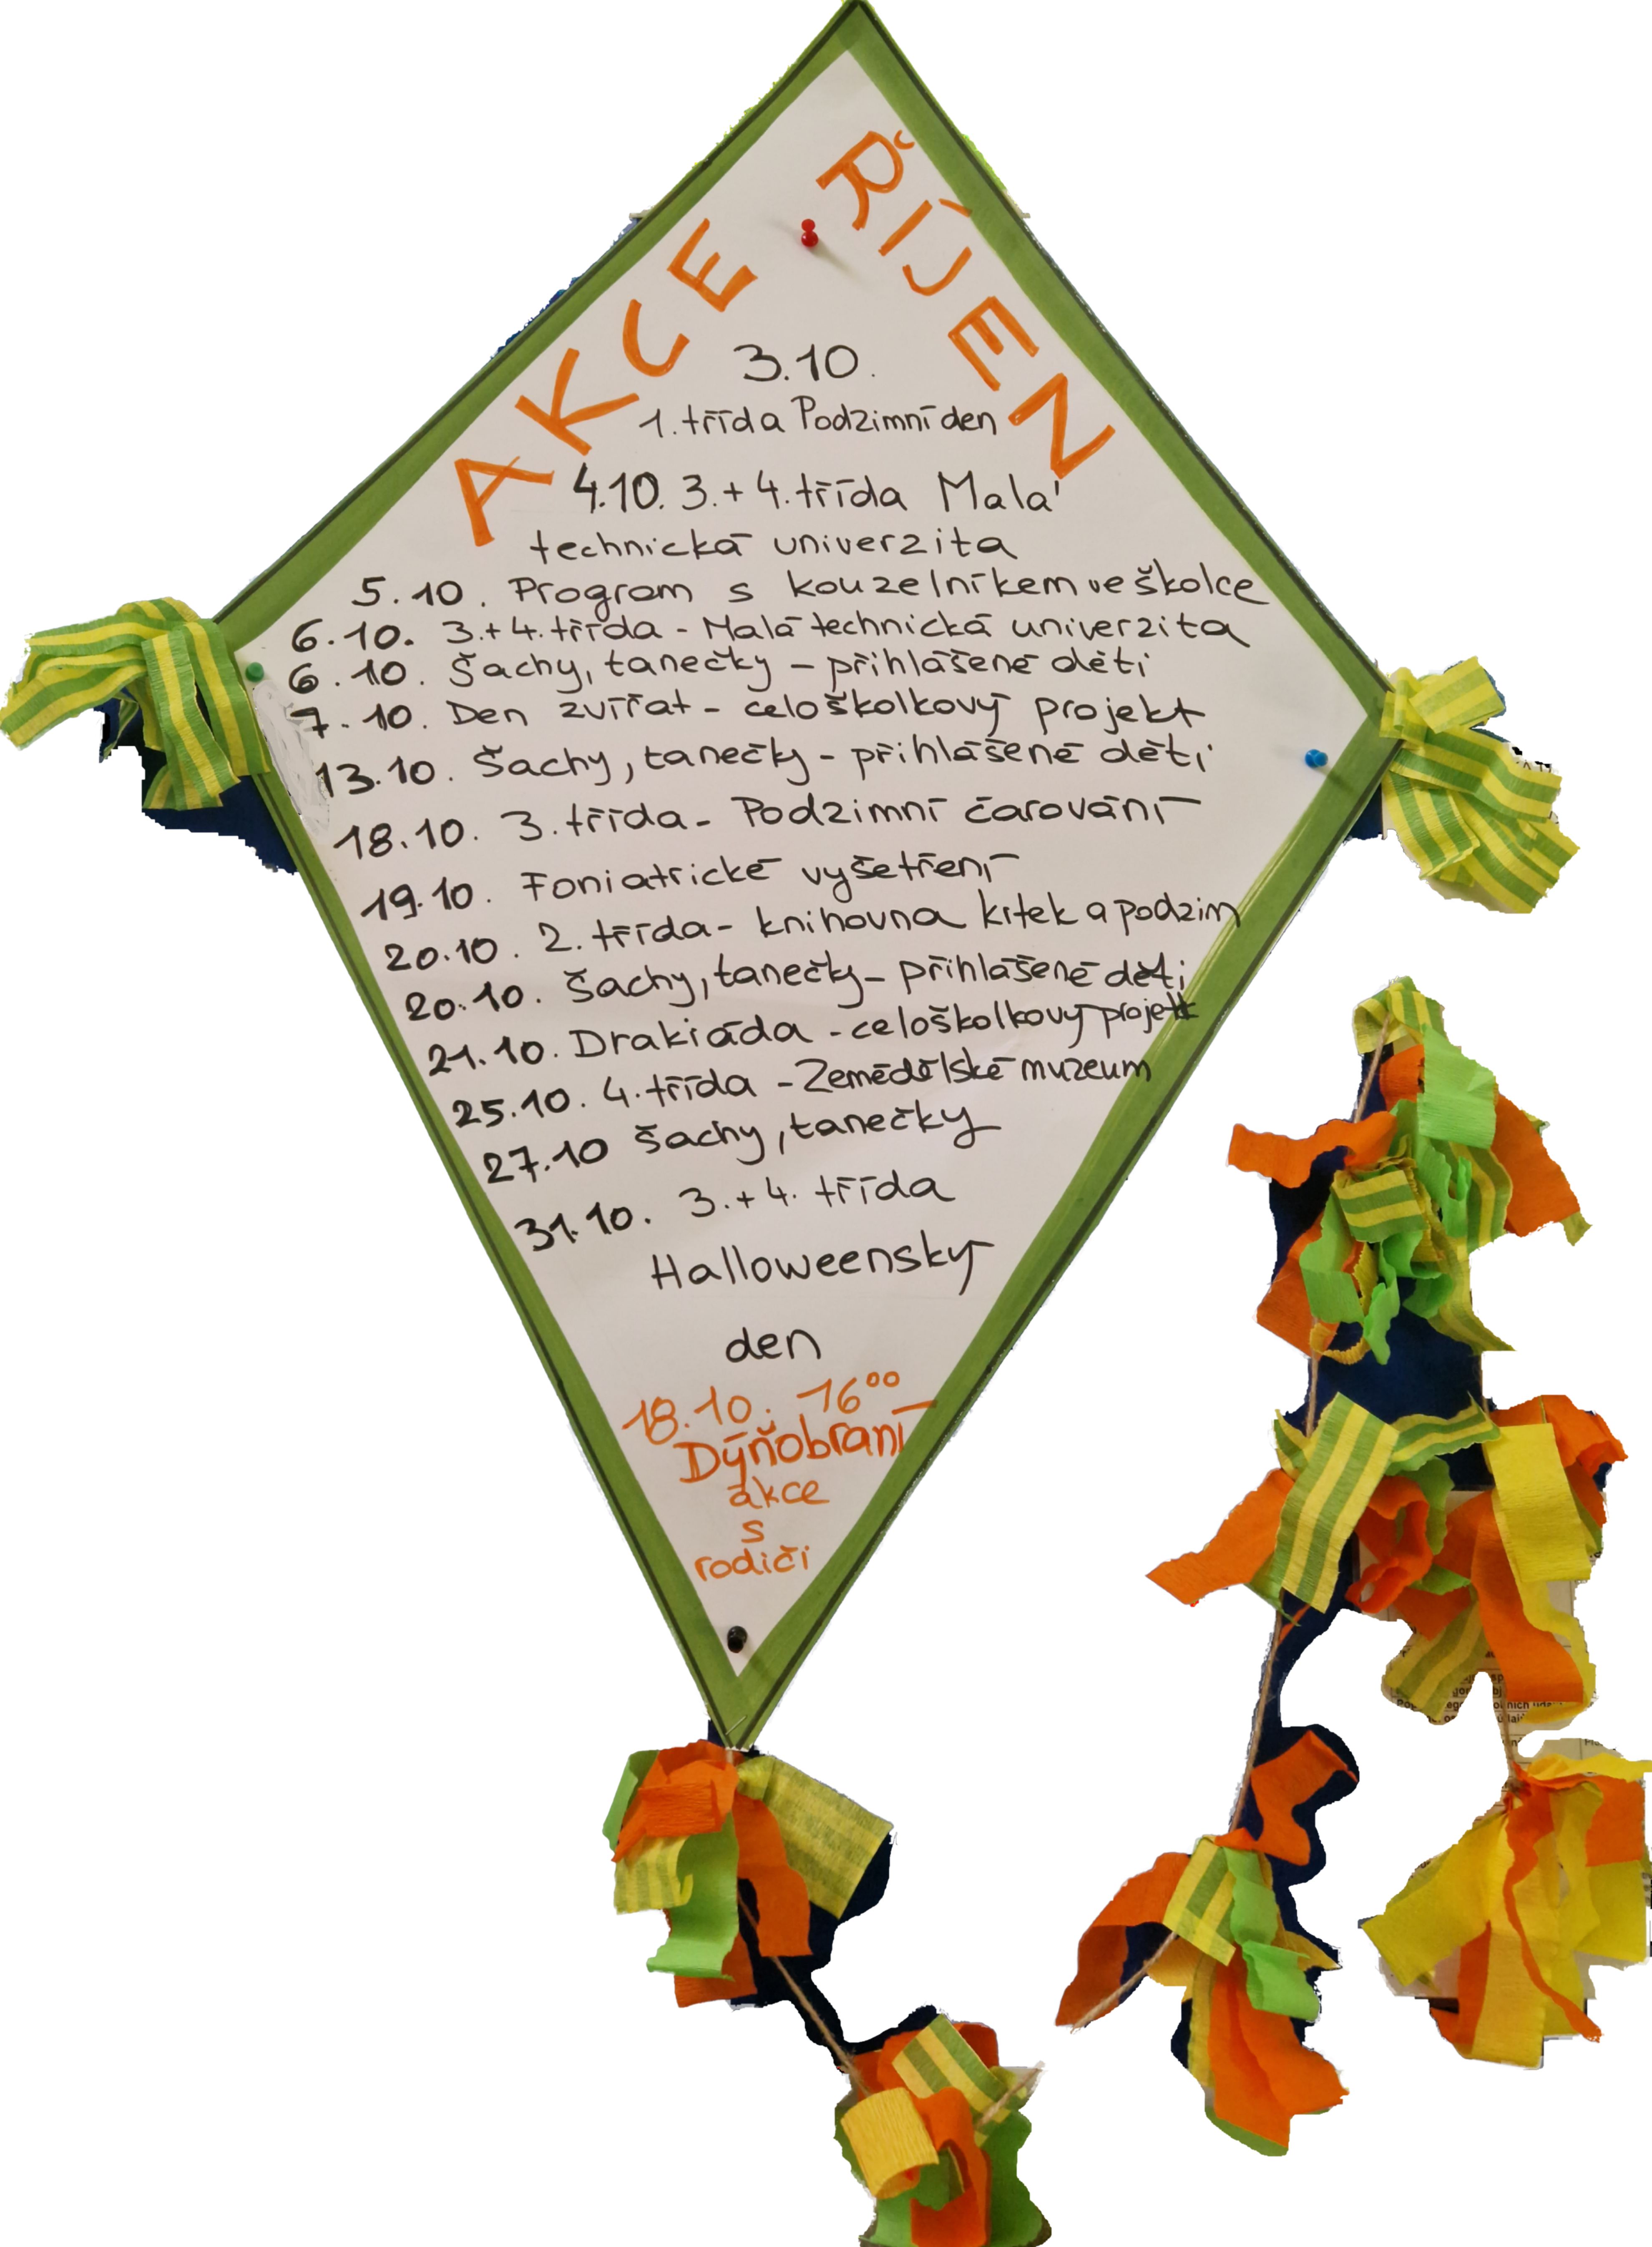 AKCE ŘÍJEN
3.10.
1. třída Podzimní den
4.10. 3.+4. třída Malá
technická univerzita
5.10. Program s kouzelníkem ve školce
6.10. 3.+4. třída - Malá technická univerzita
6.10. Šachy, tanečky - přihlášené děti
7.10. Den zvířat - celoškolkový projekt
13.10. Šachy, tanečky - přihlášené děti
18.10. 3. třída - Podzimní čarování
19.10. Foniatrické vyšetření
20.10. 2. třída - knihovna krtek a podzim
20.10. Šachy, tanečky - přihlášené děti
21.10. Drakiáda - celoškolkový projekt
25.10. 4. třída - Zemědělské muzeum
27.10 Šachy, tanečky
31.10. 3.+4. třída
Halloweenský
den
18.10. 16⁰⁰
Dýňobraní
akce
s
rodiči